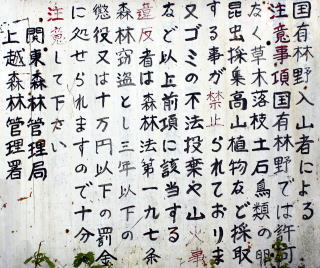 国有林野入山者による
注意事項国有林野では許可
なく草木落枝土石鳥類の卵
昆虫採集高山植物など採取
する事が禁止られておりま
又ゴミの不法投棄や山火事
など以上前項に該当する
違反者は森林法第一九七条
森林窃盗とし三年以下の
懲役又は十万円以下の罰金
に処せられますので十分
注意して下さい
関東森林管理局
上越森林管理署